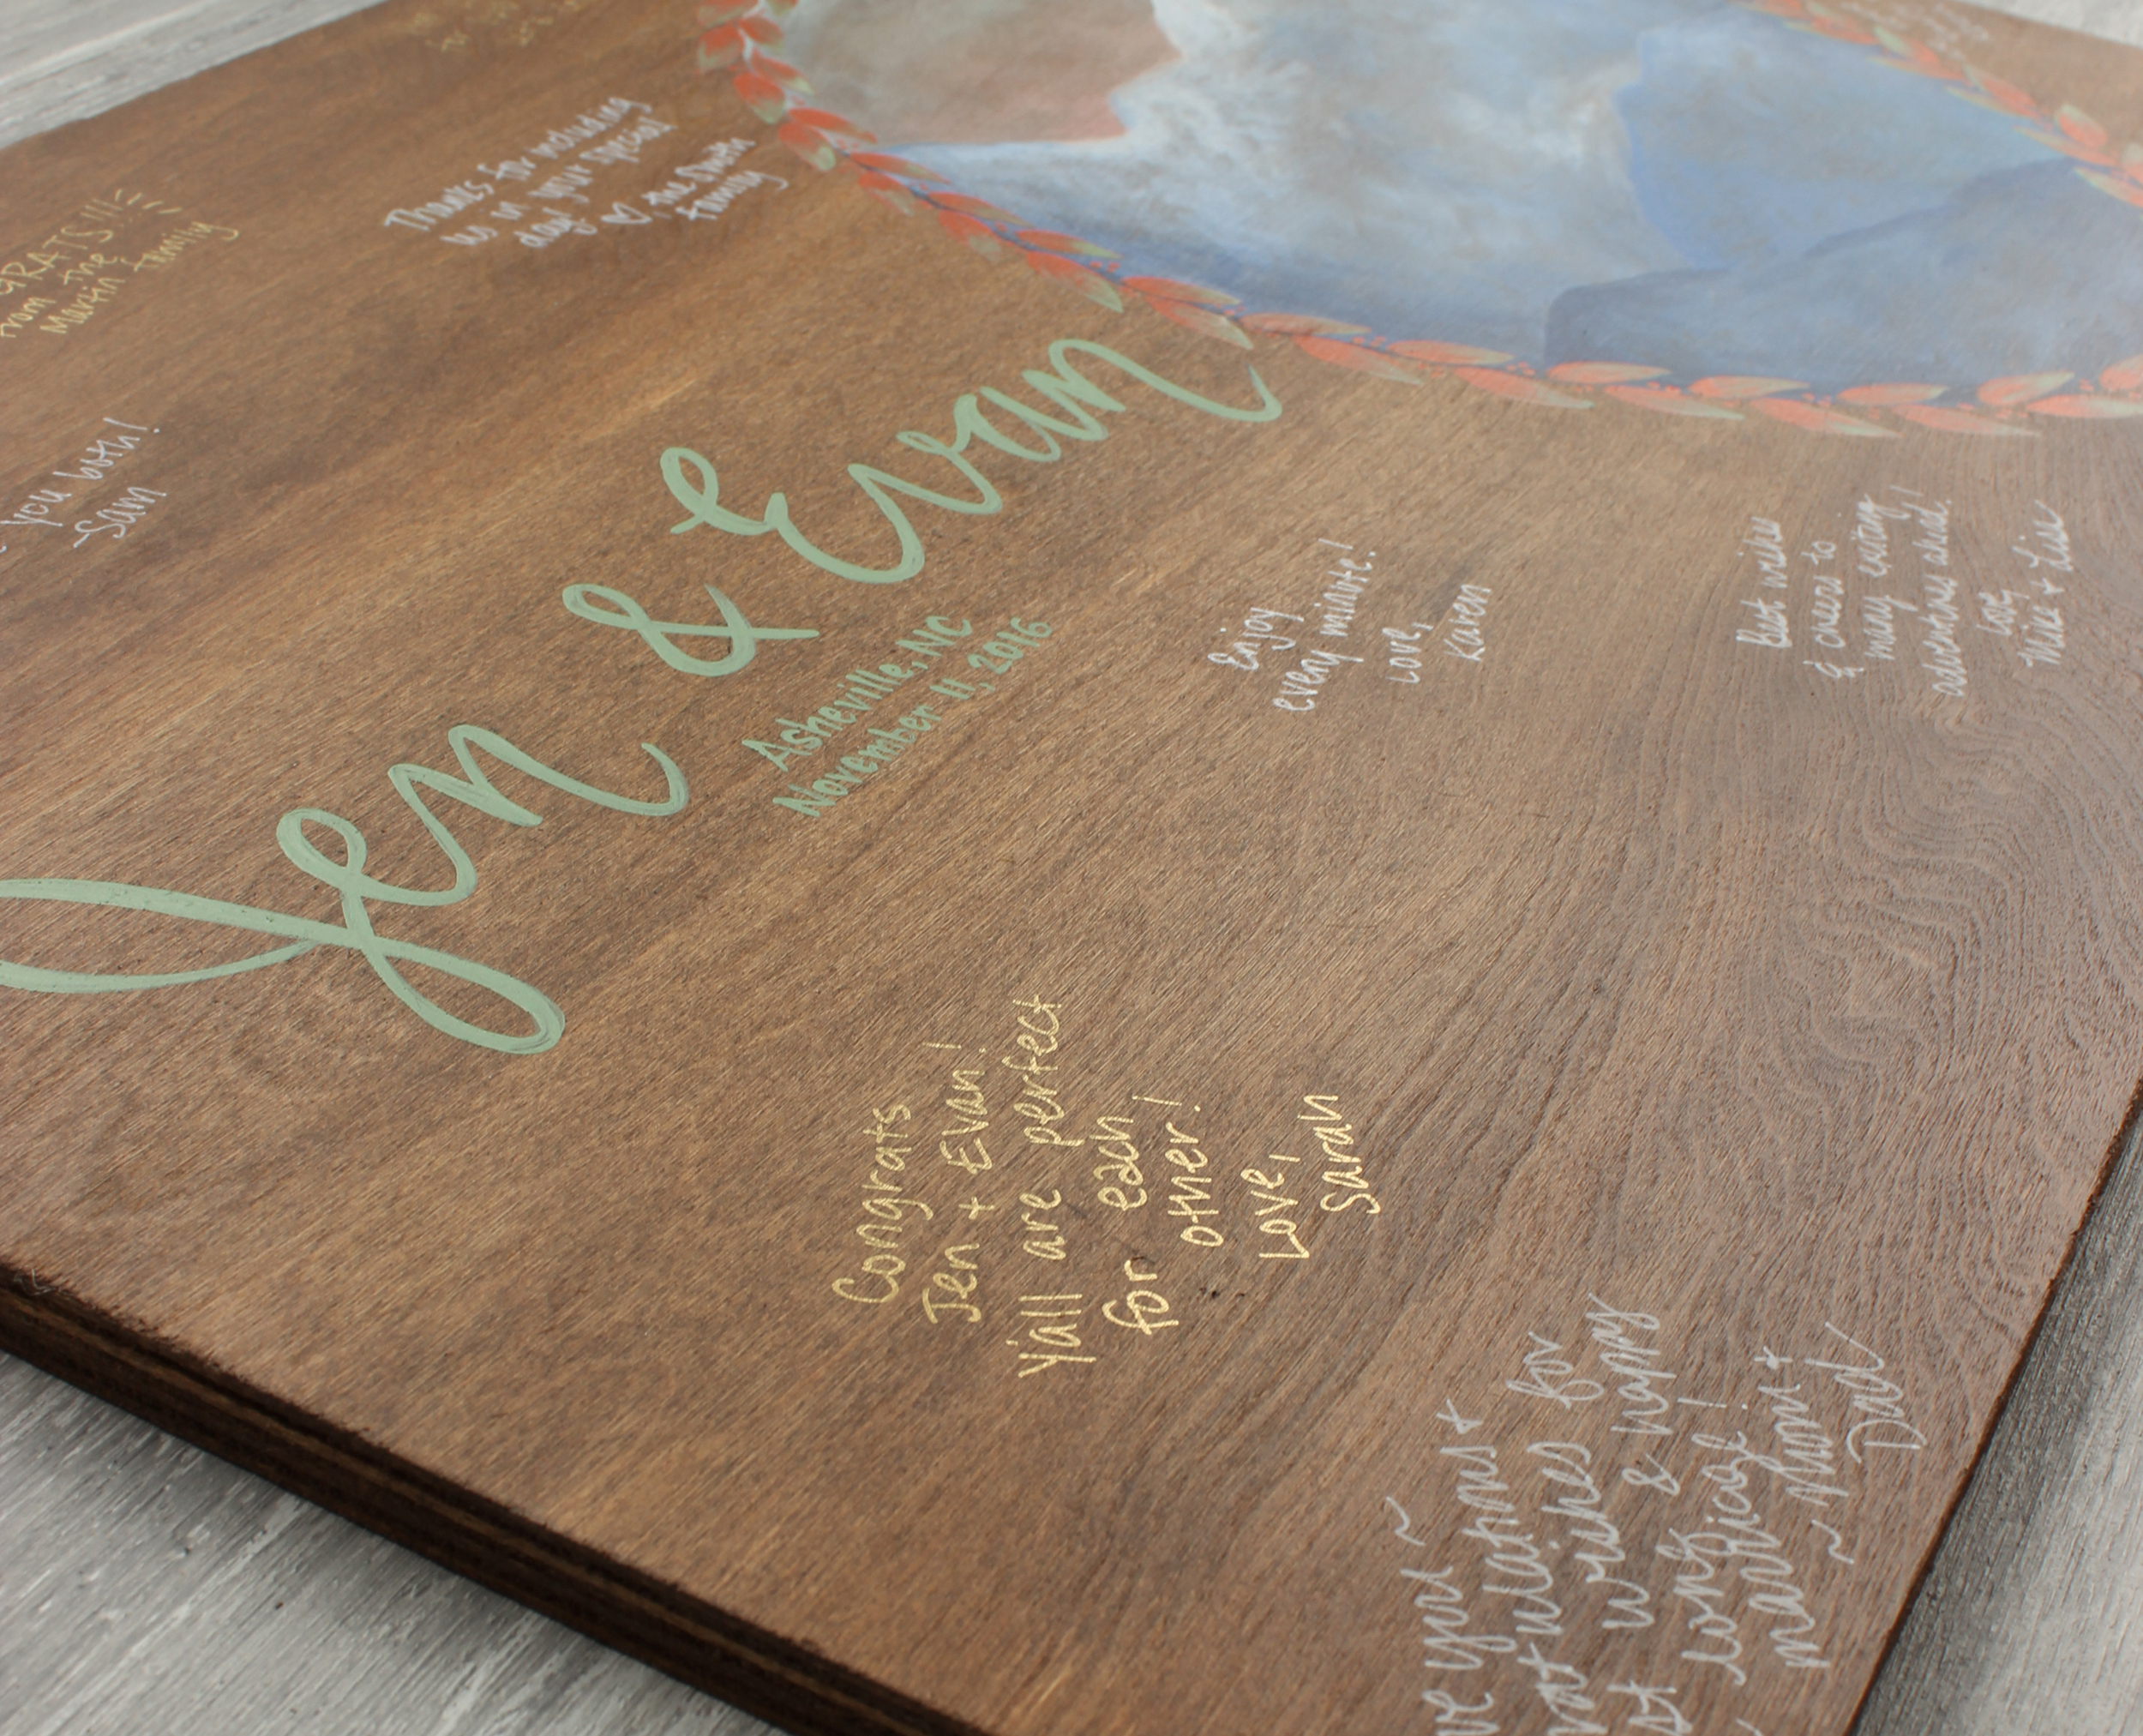 Thanks for including
us in your special
day! ♡ The Smith
Family
GRATS!!!
from the
Martin Family
you both!
~Sam
Jen & Evan
Asheville, NC
November 11, 2016
Enjoy
every minute!
Love,
Karen
Best wishes
& cheers to
many exciting
adventures ahead!
Love,
Mike + Lisa
Congrats
Jen + Evan!
Y'all are perfect
for each
other!
Love,
Sarah
you!
wishes for
long & happy
marriage!
~ Mum +
Dad